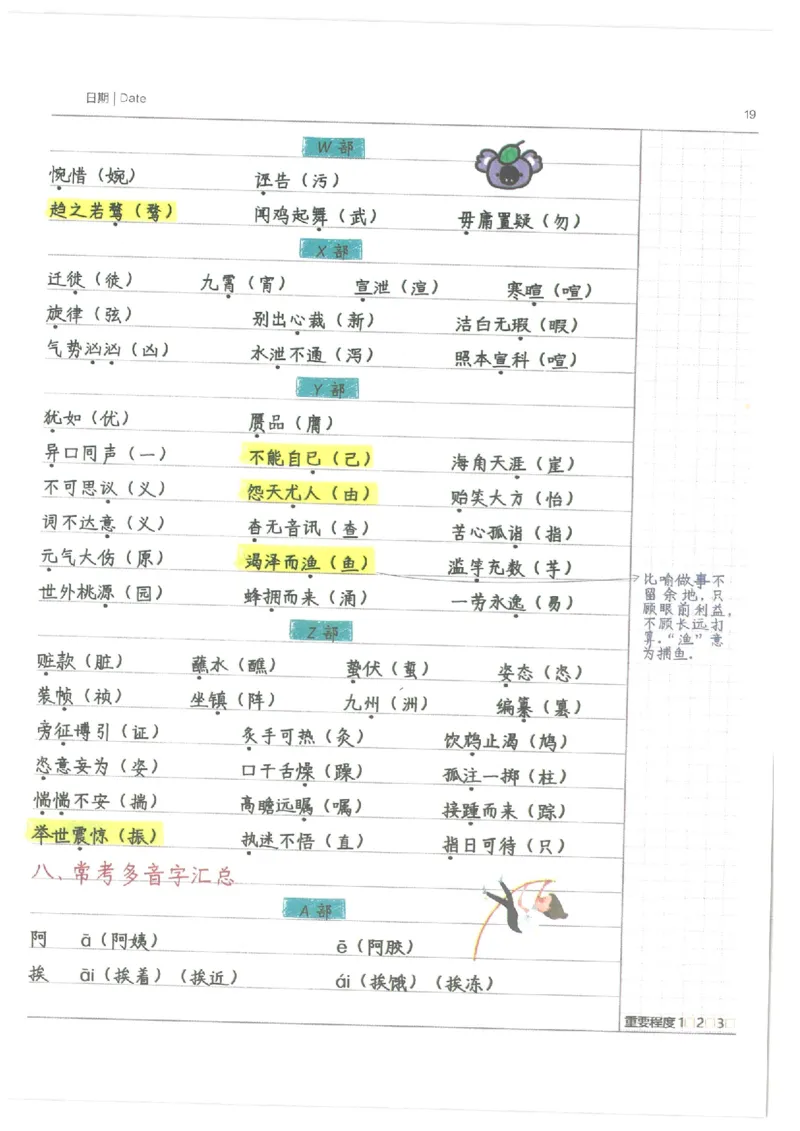 日期 | Date
19
W 部
惋惜（婉） 诬告（污）
趋之若鹜（骛） 闻鸡起舞（武） 毋庸置疑（勿）
X 部
迁徙（徒） 九霄（宵） 宣泄（渲） 寒暄（喧）
旋律（弦） 别出心裁（新） 洁白无瑕（暇）
气势汹汹（凶） 水泄不通（泻） 照本宣科（喧）
Y 部
犹如（优） 赝品（膺）
异口同声（一） 不能自已（己） 海角天涯（崖）
不可思议（义） 怨天尤人（由） 贻笑大方（怡）
词不达意（义） 杳无音讯（查） 苦心孤诣（指）
元气大伤（原） 竭泽而渔（鱼） 滥竽充数（芋）
世外桃源（园） 蜂拥而来（涌） 一劳永逸（易）
比喻做事不
留余地，只
顾眼前利益，
不顾长远打
算。“渔”意
为捕鱼.
Z 部
赃款（脏） 蘸水（醮） 蛰伏（蜇） 姿态（恣）
装帧（祯） 坐镇（阵） 九州（洲） 编纂（篡）
旁征博引（证） 炙手可热（灸） 饮鸩止渴（鸠）
恣意妄为（姿） 口干舌燥（躁） 孤注一掷（柱）
惴惴不安（揣） 高瞻远瞩（嘱） 接踵而来（踪）
举世震惊（振） 执迷不悟（直） 指日可待（只）
八、常考多音字汇总
A 部
阿 ā（阿姨） ē（阿胶）
挨 āi（挨着）（挨近） ái（挨饿）（挨冻）
重要程度 1□ 2□ 3□